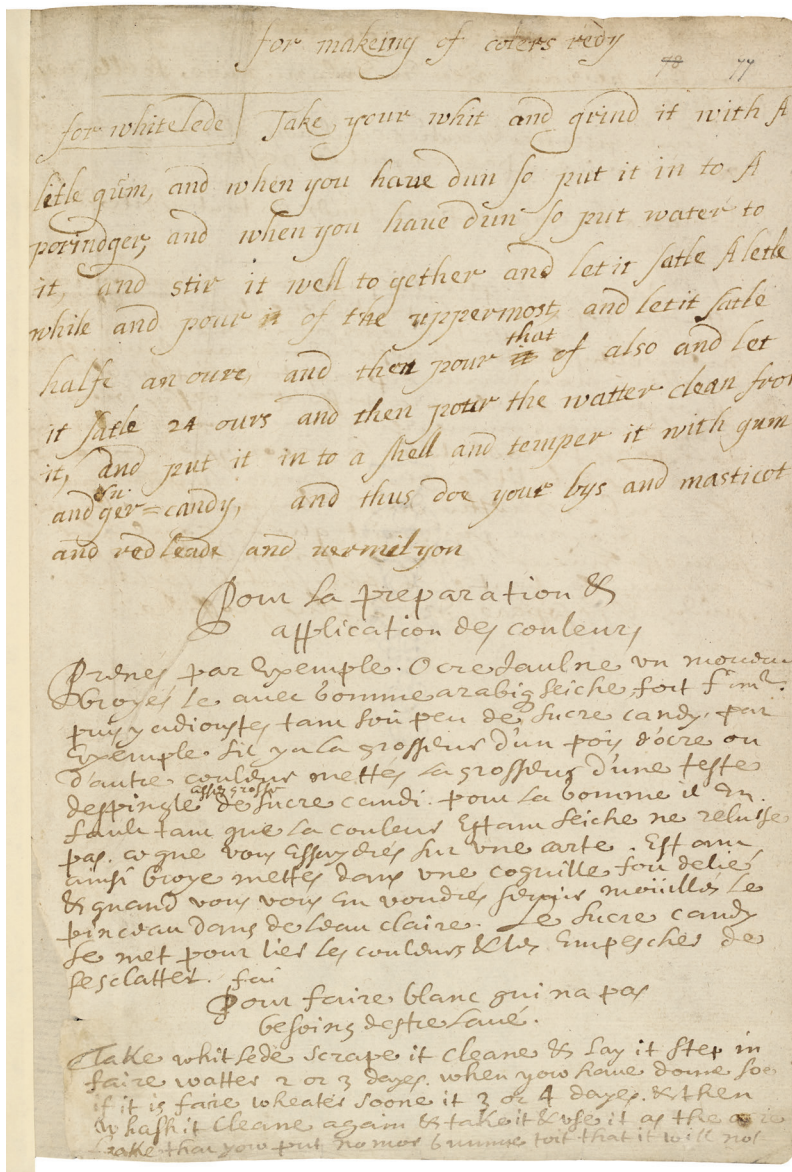 for makeing of colers redy
78 77
for whitelede Take your whit and grind it with A
litle gum, and when you haue dun so put it in to A
porindger, and when you haue dun so put water to
it, and stir it well to gether and let it satle A letle
while and pour it of the uppermost, and let it satle
halfe an oure, and then pour it that of also and let
it satle 24 ours and then pour the watter clean from
it, and put it in to a shell and temper it with gum
and ger=candy, and thus doe your bys and masticot
and red leade and vermilyon
Pour La preparation &
application des couleurs
Prenes par Exemple. Ocre Jaulne un morceau
broyes le avec Gomme arabiq seiche fort
puis y adioustes tam soit peu de sucre candy. par
Exemple. sil y a la grosseur d'un pois d'ocre ou
d'autre couleur mettes la grosseur d'une teste
despingle assez grosse de sucre candi. pour la Gomme il en
fault tam que la couleur Estam seiche ne reluise
pas. ce que vous Essuyeres sur une carte. Estam
ainsi broye mettes dans une coquille fou deliés
& quand vous vous en voudres servir moüilles Le
pinceau dans de Leau claire. Le sucre candy
se met pour lier les couleurs & les Empescher de
sesclatter. fai
Pour faire blanc qui na pas
besoing destre Lavé.
Take whit lede scrape it cleane & lay it step in
faire watter 2 or 3 dayes. when yow have done soe
if it is faire wheater soone it 3 or 4 dayes. & then
whash it Cleane again & take it & use it as the
take than yow put no mor Gumme to it that it will not